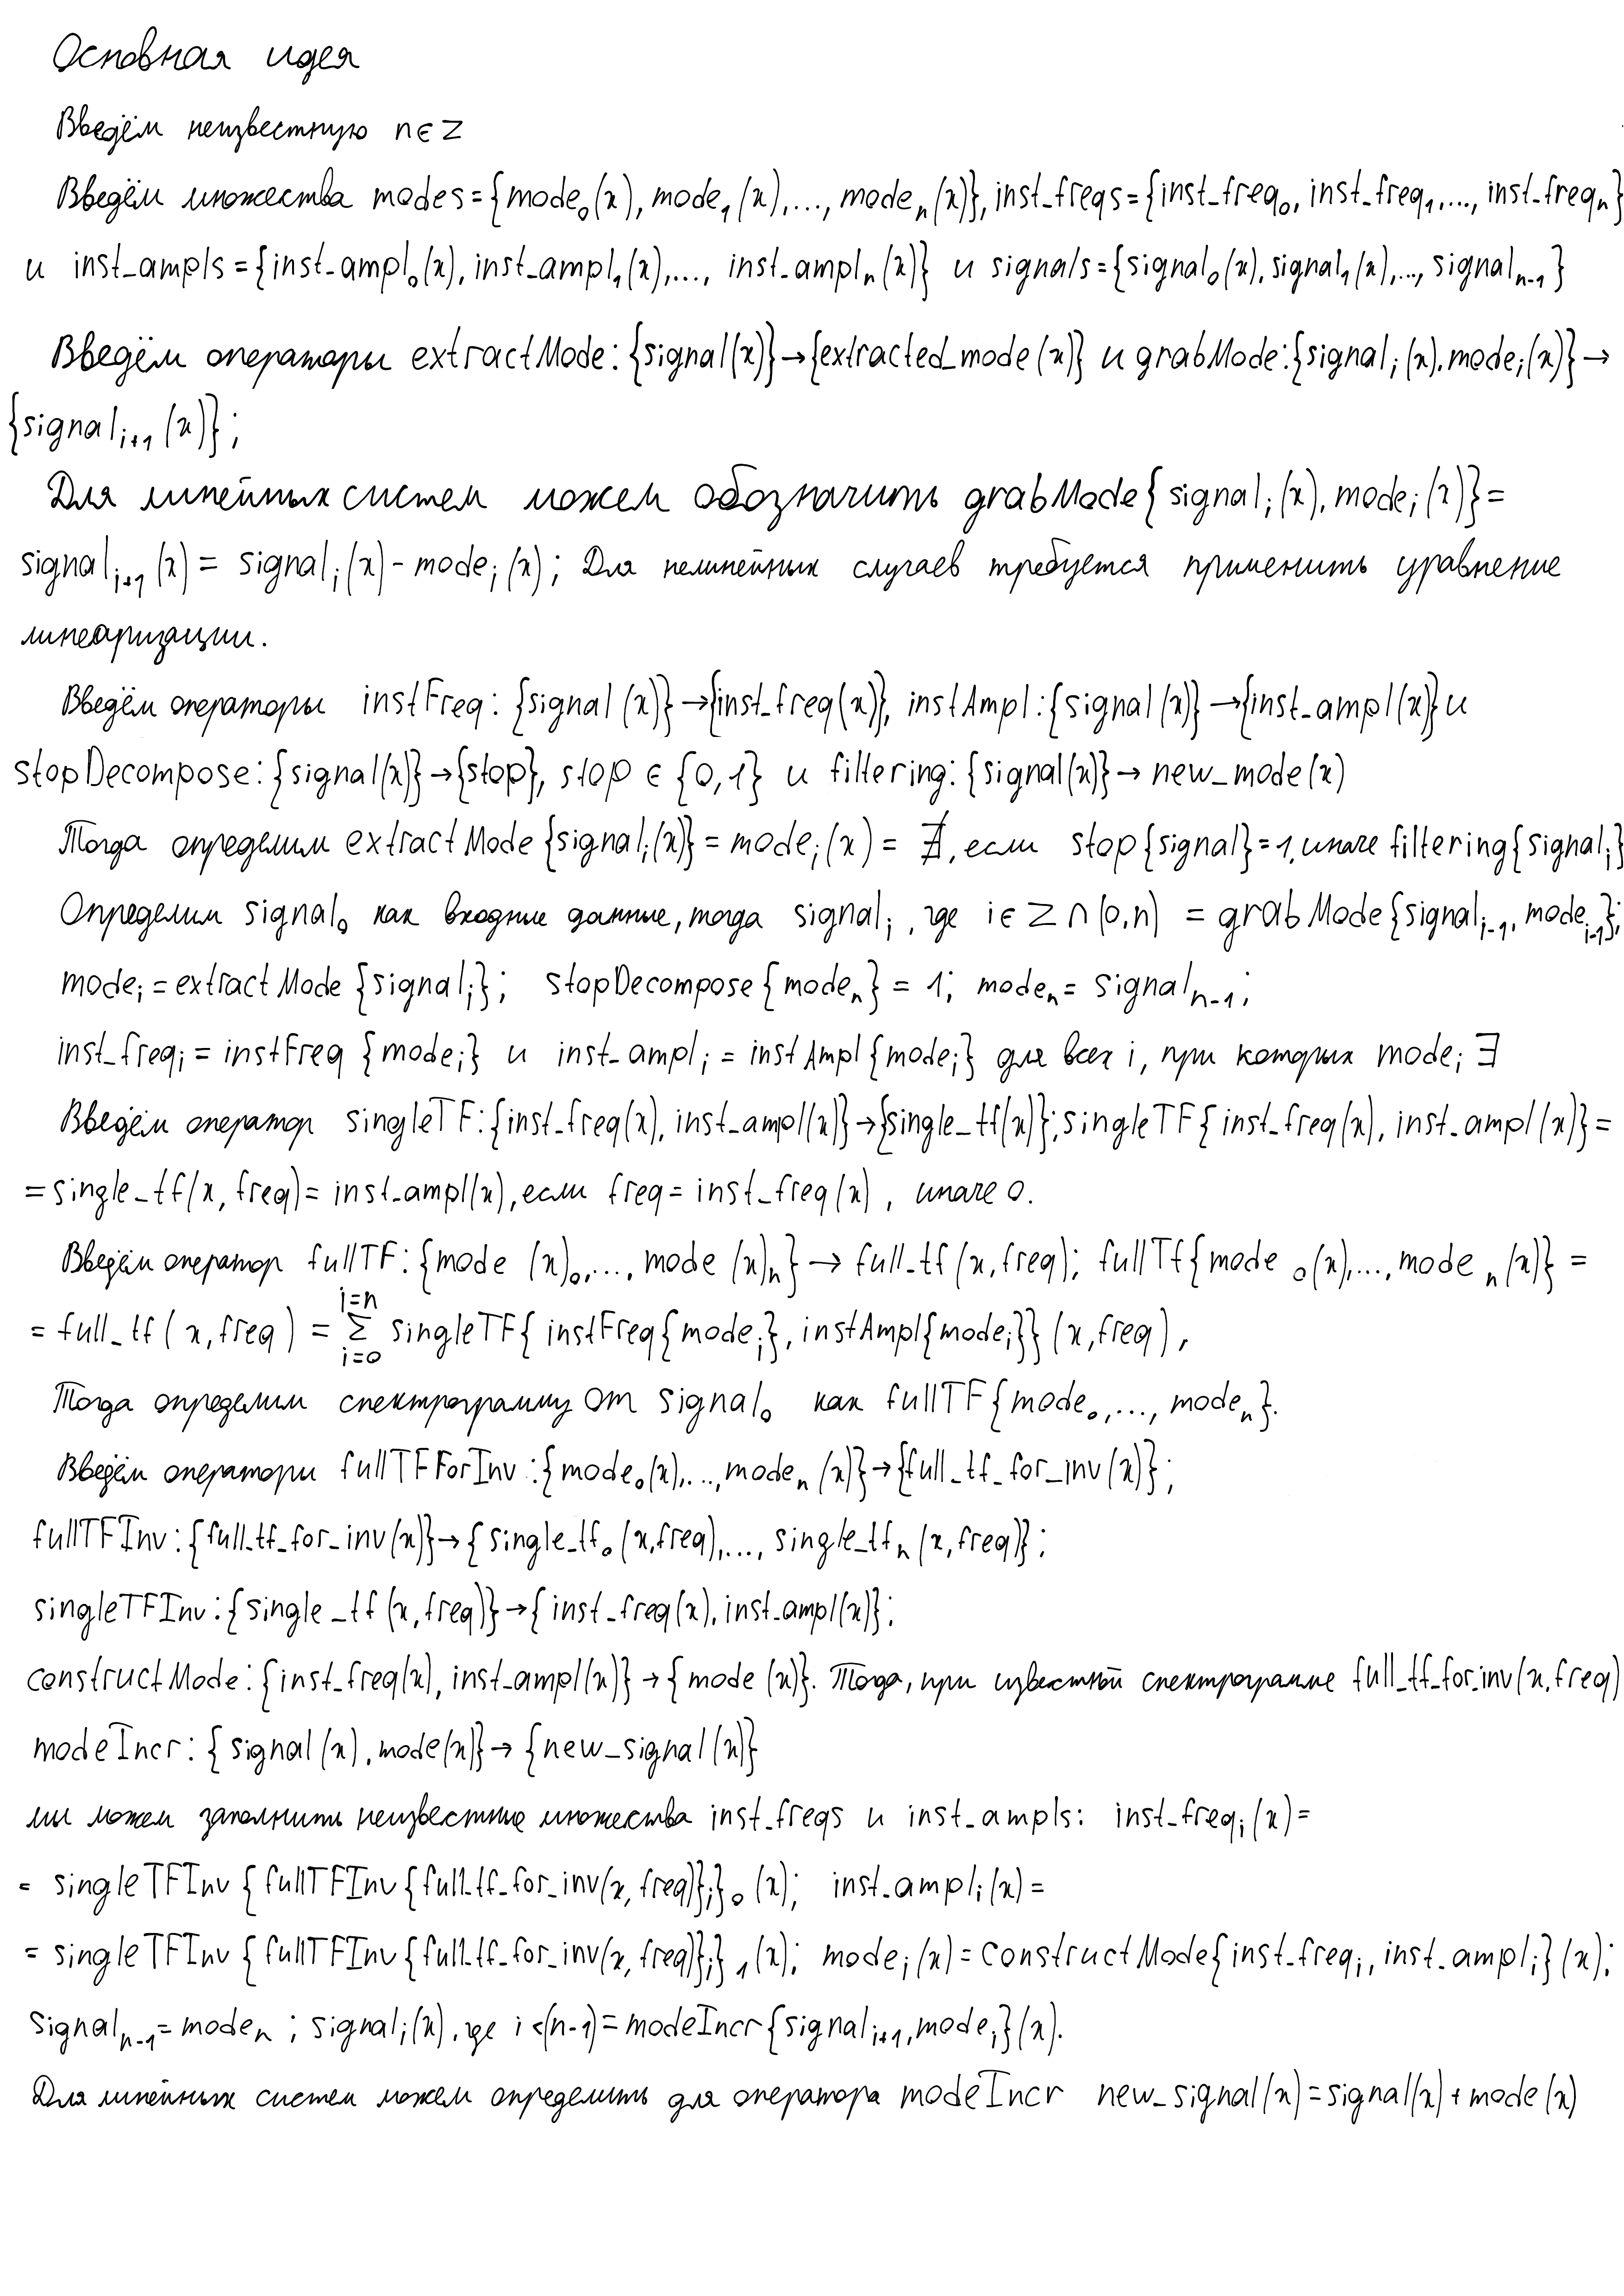 Основная идея
Введём неизвестную n∈Z
Введём множества modes={mode₀(x), mode₁(x),..., modeₙ(x)}, inst_freqs={inst_freq₀, inst_freq₁,..., inst_freqₙ}
и inst_ampls={inst_ampl₀(x), inst_ampl₁(x),..., inst_amplₙ(x)} и signals={signal₀(x), signal₁(x),..., signalₙ₋₁}
Введём операторы extractMode: {signal(x)}→{extracted_mode(x)} и grabMode: {signalᵢ(x), modeᵢ(x)}→
{signalᵢ₊₁(x)};
Для линейных систем можем обозначить grabMode{signalᵢ(x), modeᵢ(x)}=
signalᵢ₊₁(x) = signalᵢ(x) - modeᵢ(x); Для нелинейных случаев требуется применить уравнение
линеаризации.
Введём операторы instFreq: {signal(x)}→{inst_freq(x)}, instAmpl: {signal(x)}→{inst_ampl(x)} и
stopDecompose: {signal(x)}→{stop}, stop ∈ {0,1} и filtering: {signal(x)}→ new_mode(x)
Тогда определим extractMode{signalᵢ(x)} = modeᵢ(x) = ∄, если stop{signal}=1, иначе filtering{signalᵢ}
Определим signal₀ как входные данные, тогда signalᵢ, где i∈Z∩(0,n) = grabMode{signalᵢ₋₁, modeᵢ₋₁};
modeᵢ = extractMode{signalᵢ}; stopDecompose{modeₙ} = 1; modeₙ = signalₙ₋₁;
inst_freqᵢ = instFreq{modeᵢ} и inst_amplᵢ = instAmpl{modeᵢ} для всех i, при которых modeᵢ ∃
Введём оператор singleTF: {inst_freq(x), inst_ampl(x)}→{single_tf(x)}; singleTF{inst_freq(x), inst_ampl(x)}=
=single_tf(x, freq)= inst_ampl(x), если freq= inst_freq(x), иначе 0.
Введём оператор fullTF: {mode (x)₀,..., mode (x)ₙ} → full_tf(x, freq); fullTf{mode ₀(x),..., mode ₙ(x)} =
i=n
= full_tf(x, freq) = Σ singleTF{instFreq{modeᵢ}, instAmpl{modeᵢ}}(x, freq),
i=0
Тогда определим спектрограмму от signal₀ как fullTF{mode₀,..., modeₙ}.
Введём операторы fullTFForInv: {mode₀(x),..., modeₙ(x)}→{full_tf_for_inv(x)};
fullTFInv: {full_tf_for_inv(x)}→{single_tf₀(x, freq),..., single_tfₙ(x, freq)};
singleTFInv: {single_tf(x, freq)}→{inst_freq(x), inst_ampl(x)};
constructMode: {inst_freq(x), inst_ampl(x)}→{mode(x)}. Тогда, при известной спектрограмме full_tf_for_inv(x, freq)
modeIncr: {signal(x), mode(x)}→{new_signal(x)}
мы можем заполнить неизвестные множества inst_freqs и inst_ampls: inst_freqᵢ(x)=
= singleTFInv{fullTFInv{full_tf_for_inv(x, freq)}ᵢ}₀(x); inst_amplᵢ(x)=
= singleTFInv{fullTFInv{full_tf_for_inv(x, freq)}ᵢ}₁(x); modeᵢ(x)=constructMode{inst_freqᵢ, inst_amplᵢ}(x);
signalₙ₋₁=modeₙ; signalᵢ(x), где i<(n-1)=modeIncr{signalᵢ₊₁, modeᵢ}(x).
Для линейных систем можем определить для оператора modeIncr new_signal(x)=signal(x)+mode(x)